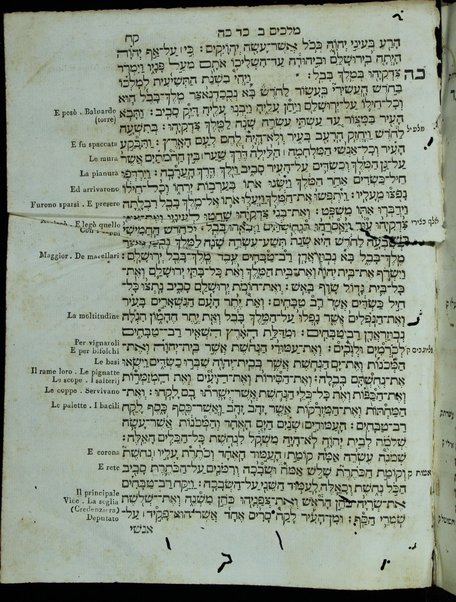 מלכים ב כד כה
קח
הרע בעיני יהוה ככל אשר־עשה יהויקים: כי ׀ על־אף יהוה
היתה בירושלם וביהודה עד־השליכו אתם מעל פניו וימרד
צדקיהו במלך בבל: ויהי בשנת התשיעית למלכו
כה
בחדש העשירי בעשור לחדש בא נבכדנאצר מלך־בבל הוא
וכל־חילו על־ירושלם ויחן עליה ויבנו עליה דיק סביב: ותבא
העיר במצור עד עשתי עשרה שנה למלך צדקיהו: בתשעה
לחדש ויחזק הרעב בעיר ולא־היה לחם לעם הארץ: ותבקע
העיר וכל־אנשי המלחמה ׀ הלילה דרך שער ׀ בין החמתים אשר
על־גן המלך וכשדים על־העיר סביב וילך דרך הערבה: וירדפו
חיל־כשדים אחר המלך וישגו אתו בערבות ירחו וכל־חילו
נפצו מעליו: ויתפשו את־המלך ויעלו אתו אל־מלך בבל רבלתה
וידברו אתו משפט: ואת־בני צדקיהו שחטו לעיניו ואת־עיני
צדקיהו עור ויאסרהו בנחשתים ויבאהו בבל: ובחדש החמישי
בשבעה לחדש היא שנת תשע־עשרה שנה למלך
מלך־בבל בא נבוזראדן רב־טבחים עבד מלך־בבל ירושלם:
וישרף את־בית־יהוה ואת־בית המלך ואת כל־בתי ירושלם ואת־
כל־בית גדול שרף באש: ואת־חומת ירושלם סביב נתצו כל־
חיל כשדים אשר רב־טבחים: ואת יתר העם הנשארים בעיר
ואת־הנפלים אשר נפלו על־המלך בבל ואת יתר ההמון הגלה
נבוזראדן רב־טבחים: ומדלת הארץ השאיר רב־טבחים
לכרמים וליגבים: ואת־עמודי הנחשת אשר בית־יהוה ואת־
המכנות ואת־ים הנחשת אשר בבית־יהוה שברו כשדים וישאו
את־נחשתם בבלה: ואת־הסירת ואת־היעים ואת־המזמרות
ואת־הכפות ואת כל־כלי הנחשת אשר ישרתו־בם לקחו: ואת־
המחתות ואת־המזרקות אשר זהב זהב ואשר־כסף כסף לקח
רב־טבחים: העמודים ׀ שנים הים האחד והמכנות אשר־עשה
שלמה לבית יהוה לא־היה משקל לנחשת כל־הכלים האלה:
שמנה עשרה אמה קומת ׀ העמוד האחד וכתרת עליו ׀ נחשת
וקומת הכתרת שלש אמה ושבכה ורמנים על־הכתרת סביב
הכל נחשת וכאלה לעמוד השני על־השבכה: ויקח רב־טבחים
את־שריה כהן הראש ואת־צפניהו כהן משנה ואת־שלשת
שמרי הסף: ומן־העיר לקח סריס אחד אשר־הוא פקיד ׀ על־
אנשי
E posò . Baluardo
(torre)
E fu spaccata
Le mura
La pianura
Ed arrivarono
Furono sparsi . E presero
E legò quello
Maggior . De macellari
La moltitudine
Per vignaroli
E per bifolchi
Le basi
Il rame loro . Le pignatte
Le scope . I salterj
Le coppe . Servivano
Le palette . I bacili
E corona
E rete
Il principale
Vice . La soglia
(Credenziera)
Deputato